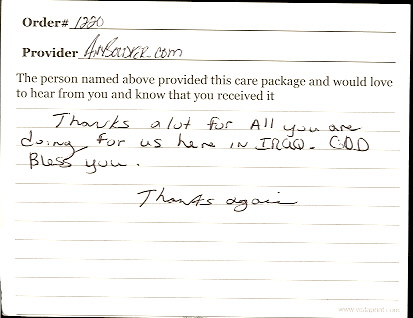 Order# 1220
Provider AnySoldier.com
The person named above provided this care package and would love
to hear from you and know that you received it
Thanks a lot for All you are
doing for us here in IRAQ. GOD
Bless you.
Thanks again